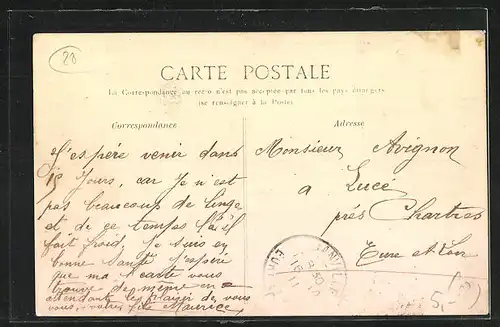 28
CARTE POSTALE
La Correspondance au recto n'est pas acceptée par tous les pays étrangers
(se renseigner à la Poste)
Correspondance
J'espére venir dans
15 Jours, car Je n'est
pas beaucoups de linge
et de ce temps la il
fait froid, Je suis en
bonne Santé J'espére
que ma carte vous
trouve de même en
attendant le plaisir de vous
vous, votre fils Maurice
Adresse
Monsieur Avignon
a Lucé
prés Chartres
Eure et Loir
8 30
16 11
EURE
5,-